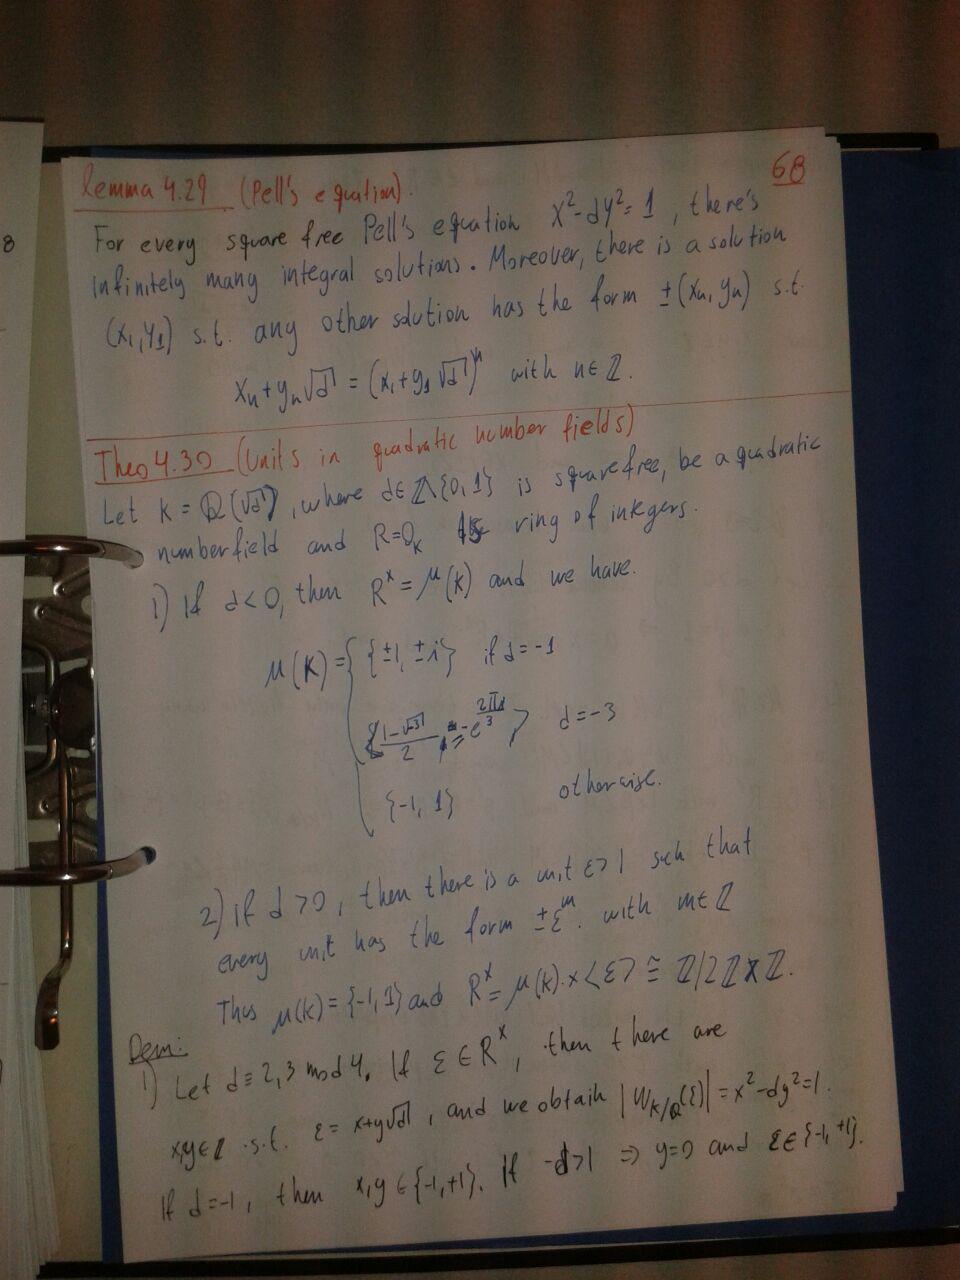 68
Lemma 4.29 (Pell's equation).
For every square free Pell's equation x²-dy²=1, there's
infinitely many integral solutions. Moreover, there is a solution
(x₁,y₁) s.t. any other solution has the form ±(xₙ, yₙ) s.t.
xₙ+yₙ√d = (x₁+y₁√d)ⁿ with n∈ℤ.
Theo 4.30 (Units in quadratic number fields)
Let K = ℚ(√d), where d∈ℤ\{0,1} is squarefree, be a quadratic
numberfield and R=O_K ring of integers.
1) If d<0, then R^× = μ(K) and we have.
μ(K) = { {±1, ±i} if d=-1
1-√-3 / 2 = -e^{2πi/3} d=-3
{-1, 1} otherwise.
2) if d>0, then there is a unit ε>1 such that
every unit has the form ±ε^m. with m∈ℤ
Thus μ(K)={-1,1} and R^× = μ(K)·×<ε> ≅ ℤ/2ℤ×ℤ.
Dem:
1) Let d≡2,3 mod 4. If ε∈R^×, then there are
x,y∈ℤ s.t. ε=x+y√d, and we obtain |N_{K/ℚ}(ε)|=x²-dy²=1.
If d=-1, then x,y∈{-1,+1}. If -d>1 ⇒ y=0 and ε∈{-1,+1}.
8